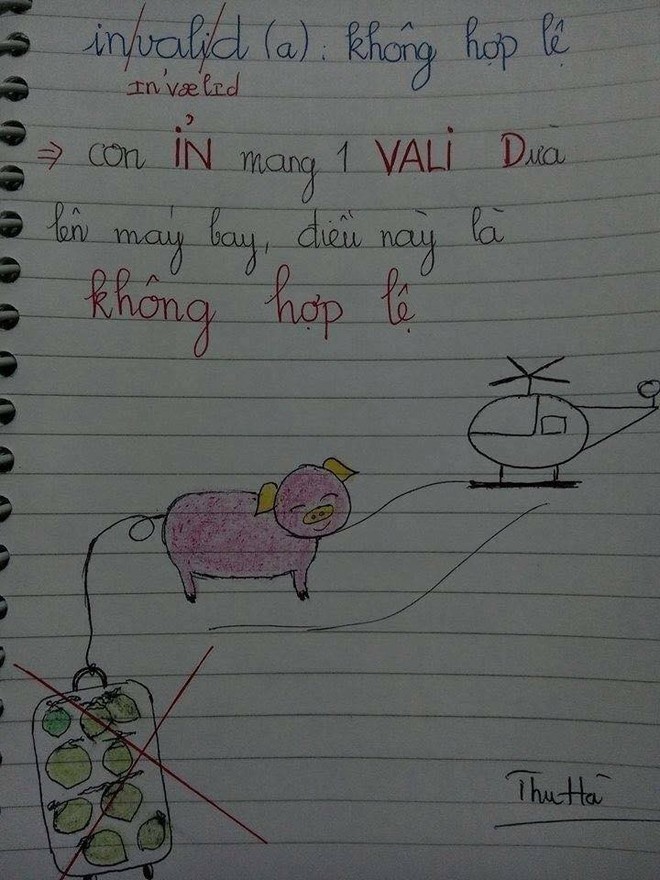 in/vali/d (a): không hợp lệ
In'vælId
⇒ con ỈN mang 1 VALI Dừa
lên máy bay, điều này là
không hợp lệ
Thu Hà